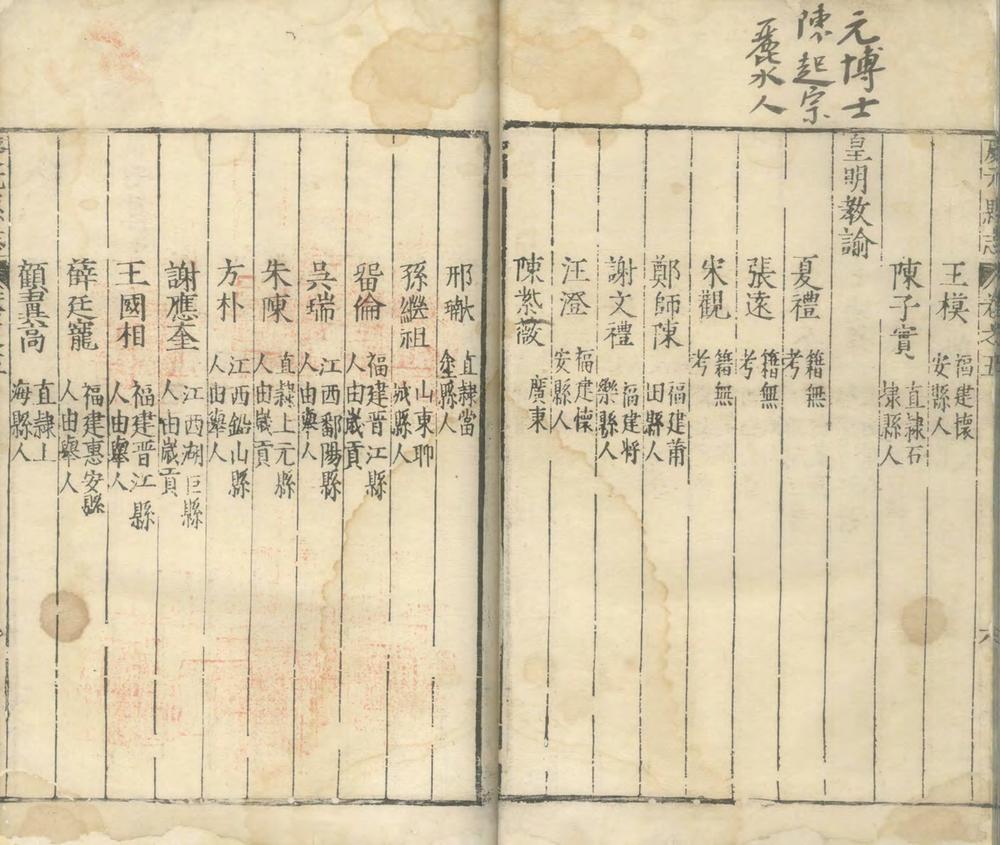 元博士
陳起宗
麗水人
慶元縣志 卷之五 六
王模 福建懷安縣人
陳子實 直隸石埭縣人
皇明教諭
夏禮 籍無考
張遠 籍無考
宋觀 籍無考
鄭師陳 福建莆田縣人
謝文禮 福建將樂縣人
汪澄 福建懷安縣人
陳紫薇 廣東
邢 直隸當塗縣人
孫繼祖 山東聊城縣人
留倫 福建晉江縣人由嵗貢
吳瑞 江西鄱陽縣人由舉人
朱陳 直隸上元縣人由嵗貢
方朴 江西鉛山縣人由舉人
謝應奎 江西湖口縣人由嵗貢
王國相 福建晉江縣人由舉人
薛廷寵 福建惠安縣人由舉人
顧 直隸上海縣人